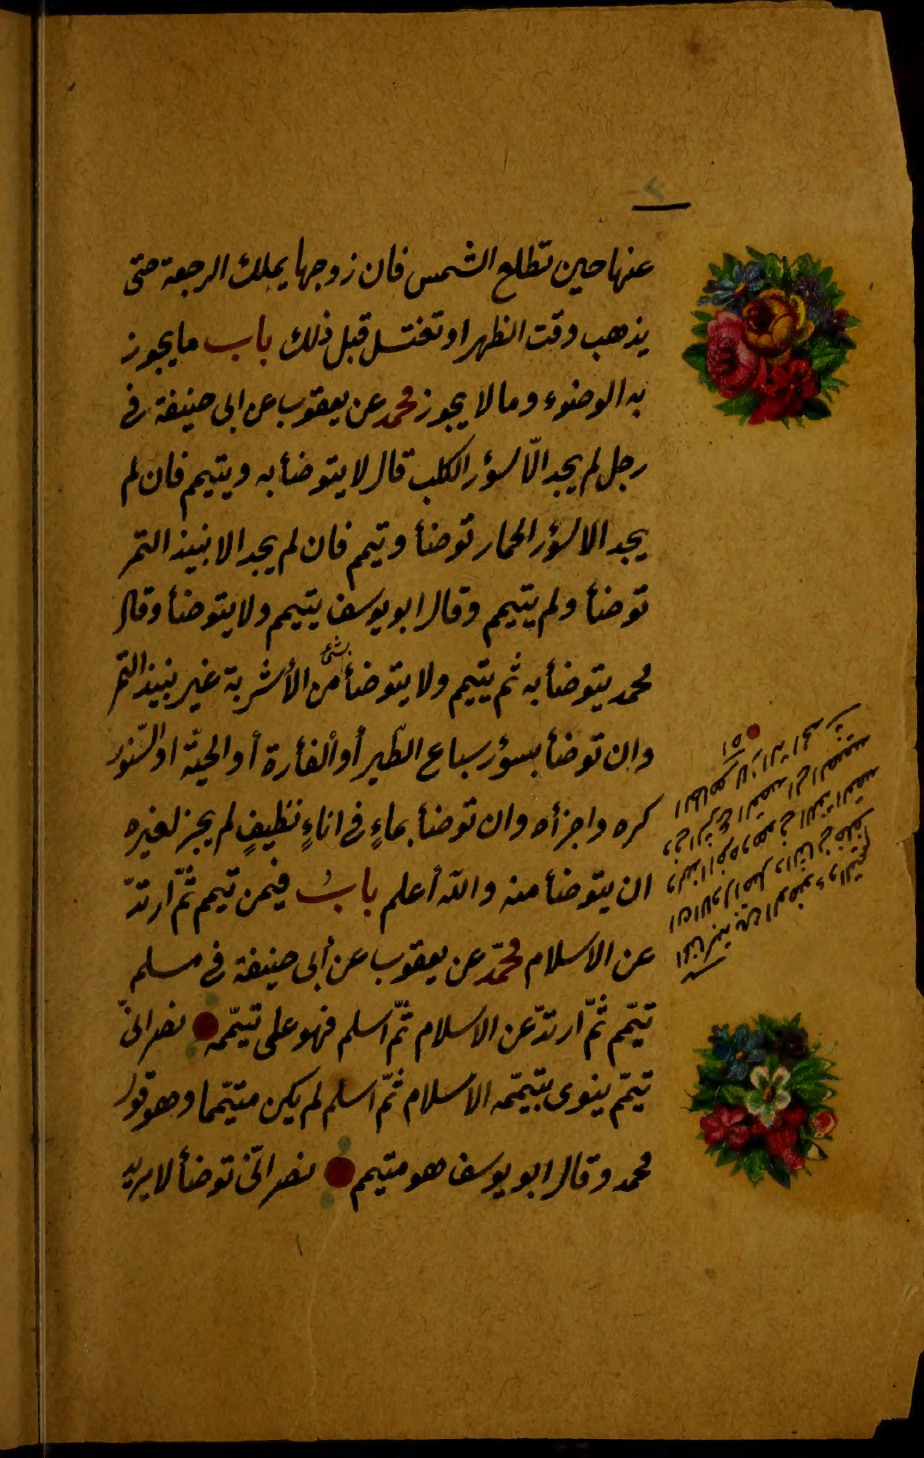 عنها حين تطلع الشمس فان زوجها يملك الرجعة حتى
يذهب وقت الظهر او تغتسل قبل ذلك باب ما يجوز
به الوضوء وما لا يجوز محمد عن يعقوب عن ابى حنيفة فى
رجل لم يجد الّا سؤر الكلب قال لا يتوضأ به ويتيمم فان لم
يجد الا سؤر الحمار توضأ وتيمم فان لم يجد الا نبيذ التمر
توضأ ولم يتيمم وقال ابو يوسف يتيمم ولا يتوضأ وقال
محمد يتوضأ به ثم يتيمم ولا يتوضأ بشئ من الأشربة غير نبيذ التمر
وان توضأ بسؤر سباع الطّير أو الفأرة أو الحيّة او السّنور
كره واجزأه وان توضأ بماءٍ فى اناءٍ نظيفٍ لم يجز لغيره
ان يتوضأ منه والله أعلم بابُ فيمن تيمم ثُمّ ارتدّ
عن الاسلام محمّد عن يعقوب عن أبى حنيفة فى مسلم
تيمّم ثُمّ ارتدّ عن الاسلام ثُمّ اسلم فهو على تيمّمه نصرانىّ
تيمّم ينوى بتيمّمه الاسلام ثُمّ اسلم لم يكن متيمّما وهو قول
محمد وقال ابو يوسف هو متيمم نصرانىّ توضأ لا يريد